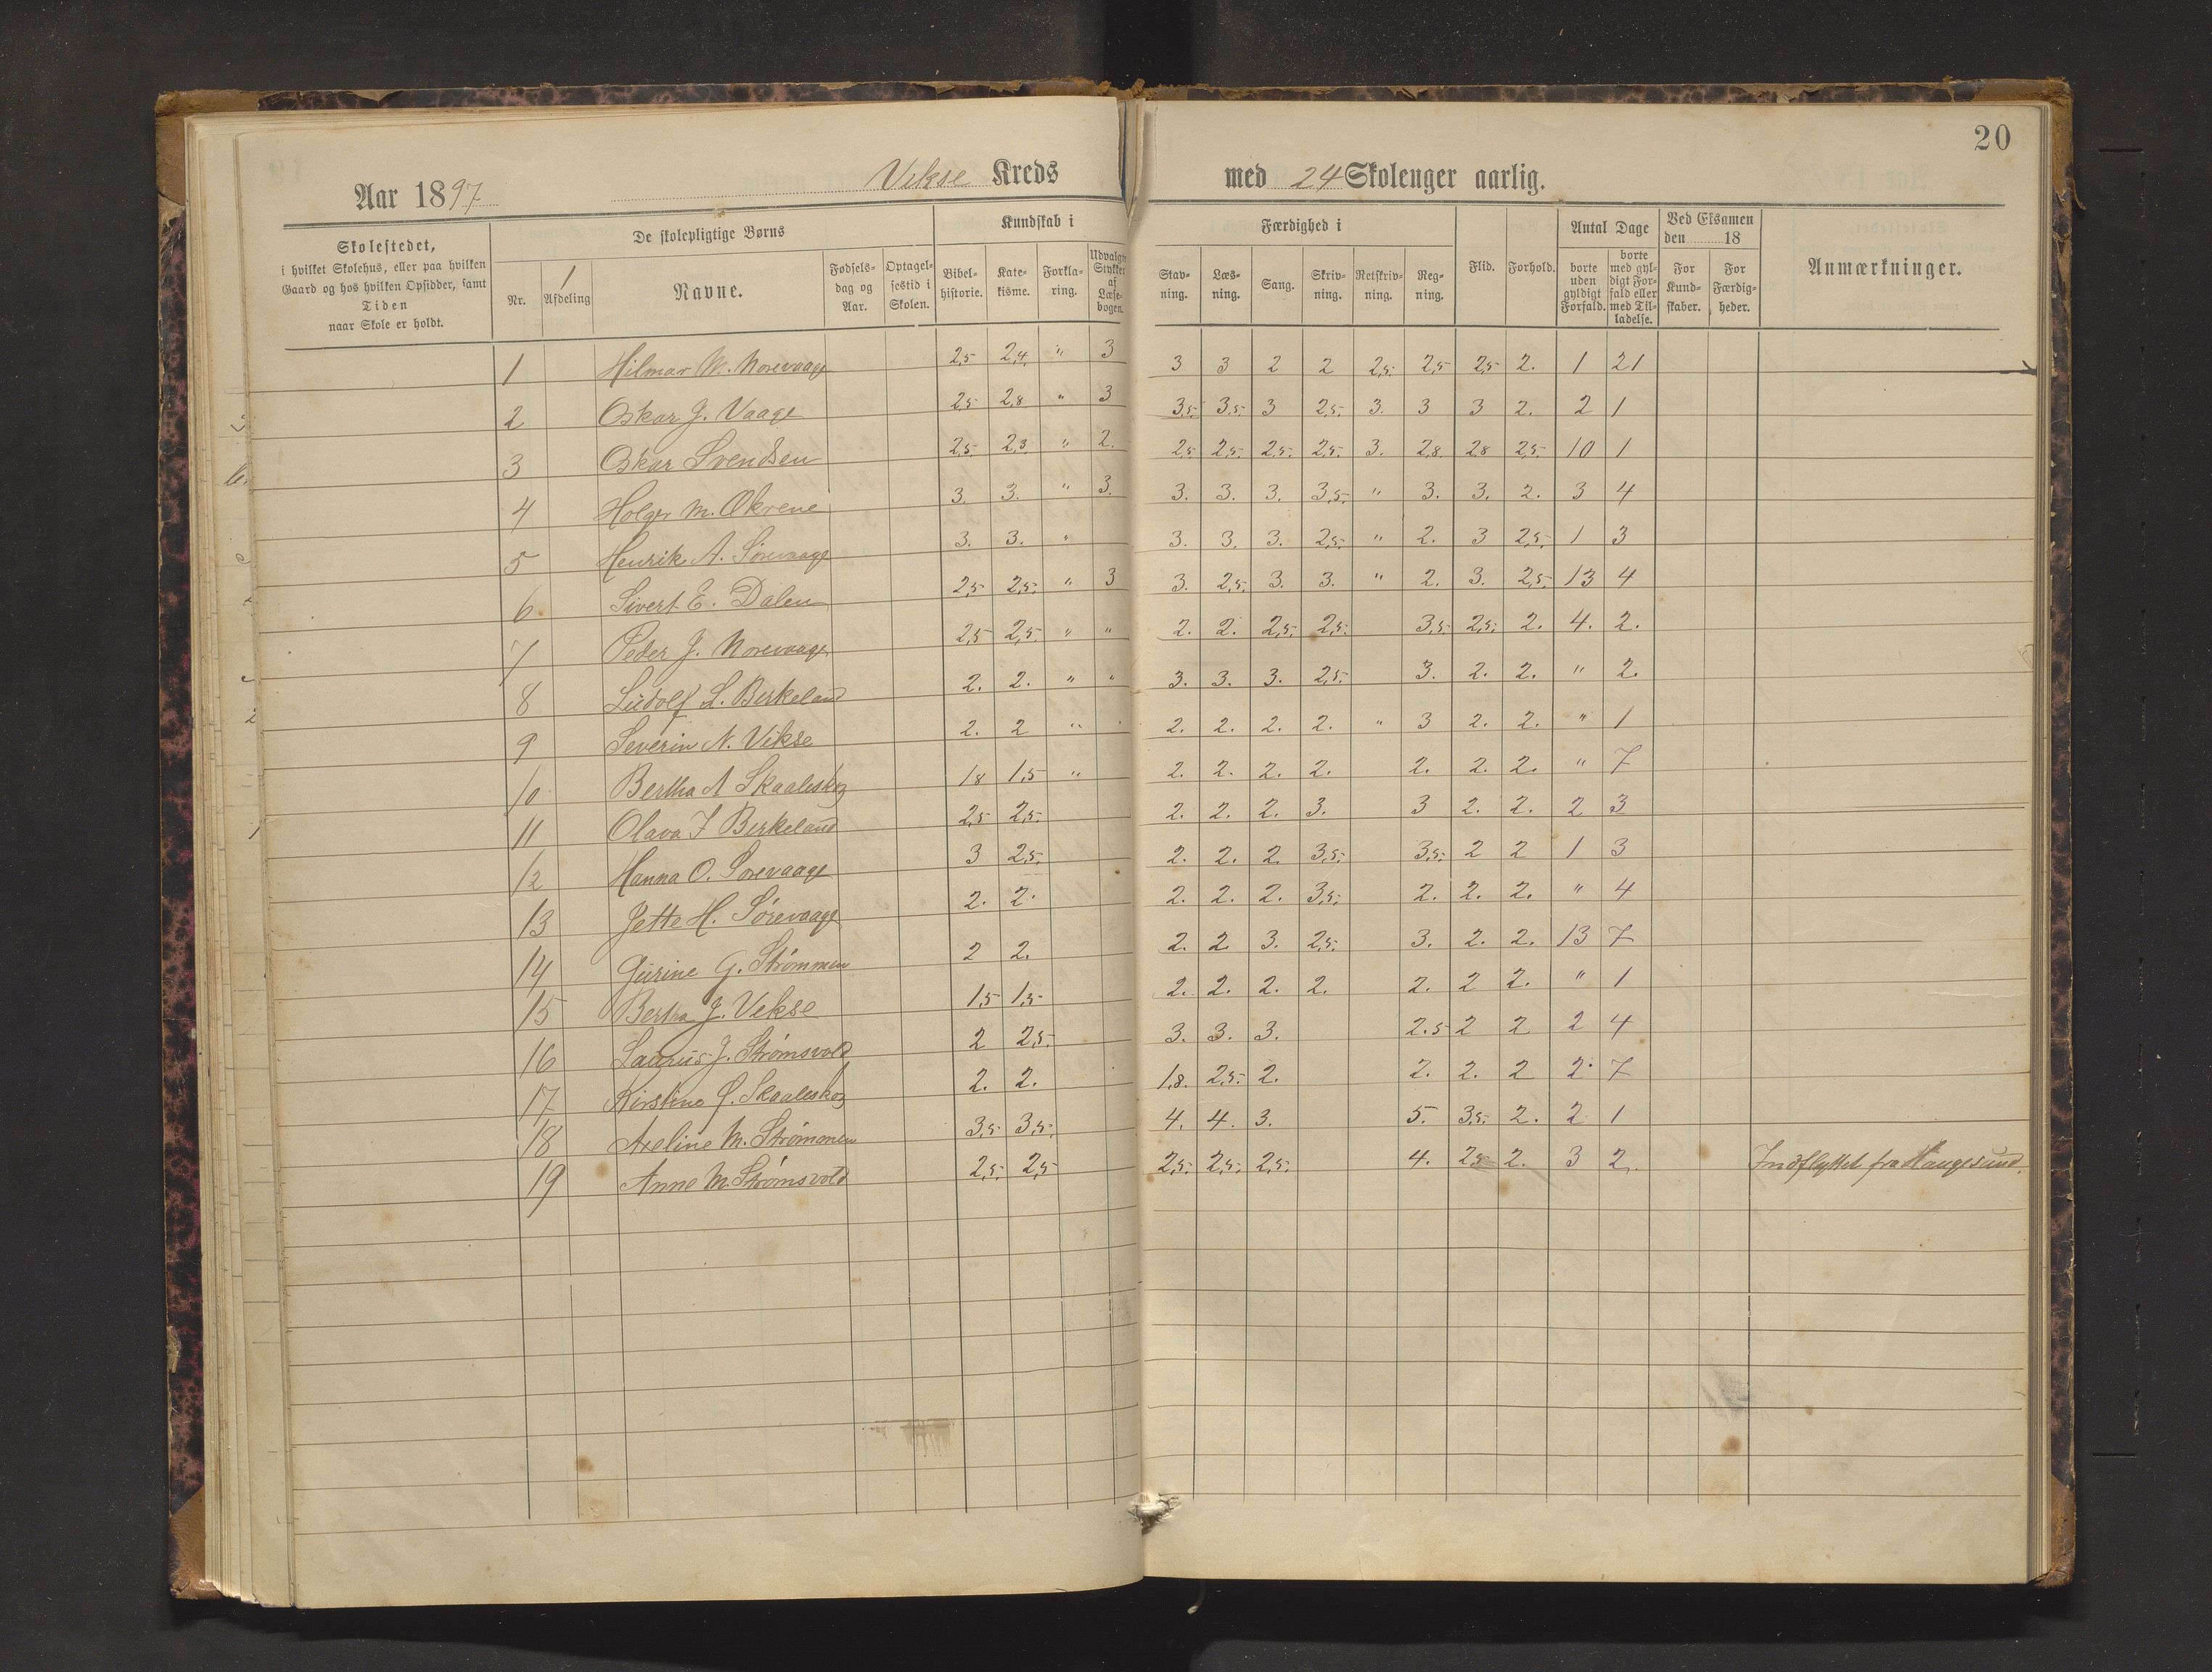 20
Aar 1897 Vikse Kreds med 24 Skolenger aarlig.
Skolestedet, i hvilket Skolehus, eller paa hvilken Gaard og hos hvilken Opsidder, samt Tiden naar Skole er holdt.
De skolepligtige Børns
Nr. 1 Afdeling Navne. Fødsels-dag og Aar. Optagel-sestid i Skolen.
Kundskab i
Bibel-historie. Kate-kisme. Forkla-ring. Udvalgte Stykker af Læse-bogen.
Færdighed i
Stav-ning. Læs-ning. Sang. Skriv-ning. Retskriv-ning. Reg-ning.
Flid. Forhold.
Antal Dage
borte uden gyldigt Forfald. borte med gyl-digt For-fald eller med Til-ladelse.
Ved Eksamen den 18
For Kund-skaber. For Færdig-heder.
Anmærkninger.
1 Hilmar W. Norevaage 2,5 2,4 " 3 3 3 2 2 2,5. 2,5 2,5 2. 1 21
2 Oskar J. Vaage 2,5 2,8 " 3 3,5. 3,5. 3 2,5. 3. 3 3 2. 2 1
3 Oskar Svendsen 2,5. 2,3 " 2. 2,5 2,5. 2,5. 2,5. 3. 2,8. 2,8 2,5. 10 1
4 Holger M. Økrene 3. 3. " 3. 3. 3. 3. 3,5. " 3. 3. 2. 3 4
5 Henrik A. Sørevaage 3. 3. " 3. 3. 3. 2,5. " 2. 3 2,5. 1 3
6 Sivert E. Dalen 2,5 2,5. " 3 3. 2,5. 3. 3. " 2. 3. 2,5. 13 4
7 Peder J. Norevaage 2,5 2,5. " " 2. 2. 2,5. 2,5. 3,5. 2,5. 2. 4. 2.
8 Ludolf L. Birkeland 2. 2. " " 3. 3. 3. 2,5. 3. 2. 2. " 2.
9 Severin N. Vikse 2. 2 " 2. 2. 2. 2. " 3 2. 2. " 1
10 Bertha A Skaaleskog 1,8 1,5 " 2. 2. 2. 2. 2. 2. 2. " 7
11 Olava I Birkeland 2,5 2,5. 2. 2. 2. 3. 3 2. 2. 2 3
12 Hanna O. Sørevaage 3 2,5. 2. 2. 2. 3,5. 3,5. 2 2 1 3
13 Jette H. Sørevaage 2. 2. 2. 2. 2. 3,5. 2. 2. 2. " 4
14 Gurine G. Strømmen 2 2. 2. 2. 3. 2,5. 3. 2. 2. 13 7
15 Bertha J. Vikse 1,5 1,5 2. 2. 2. 2. 2. 2 2. " 1
16 Laurus J. Strømsvold 2 2,5. 3. 3. 3. 2.5 2 2 2 4
17 Kirstine Skaaleskog 2. 2. 1,8. 2,5. 2. 2. 2. 2 2. 7
18 Axeline M. Strømmen 3,5. 3,5. 4. 4. 3. 5. 3,5. 2. 2 1
19 Anne M. Strømsvold 2,5. 2,5 2,5. 2,5. 2,5. 4. 2,5 2. 3 2. Indflyttet fra Haugesund.